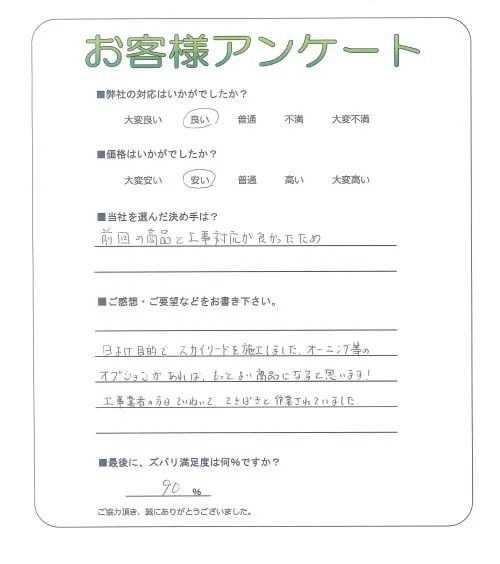 お客様アンケート
■弊社の対応はいかがでしたか？
大変良い 良い 普通 不満 大変不満
■価格はいかがでしたか？
大変安い 安い 普通 高い 大変高い
■当社を選んだ決め手は？
前回の商品と工事対応が良かったため
■ご感想・ご要望などをお書き下さい。
日よけ目的で スカイリードを施工しました。オーニング等の
オプションがあれば、もっとよい商品になると思います！
工事業者の方はていねいで、てきぱきと作業されていました
■最後に、ズバリ満足度は何%ですか？
90 %
ご協力頂き、誠にありがとうございました。